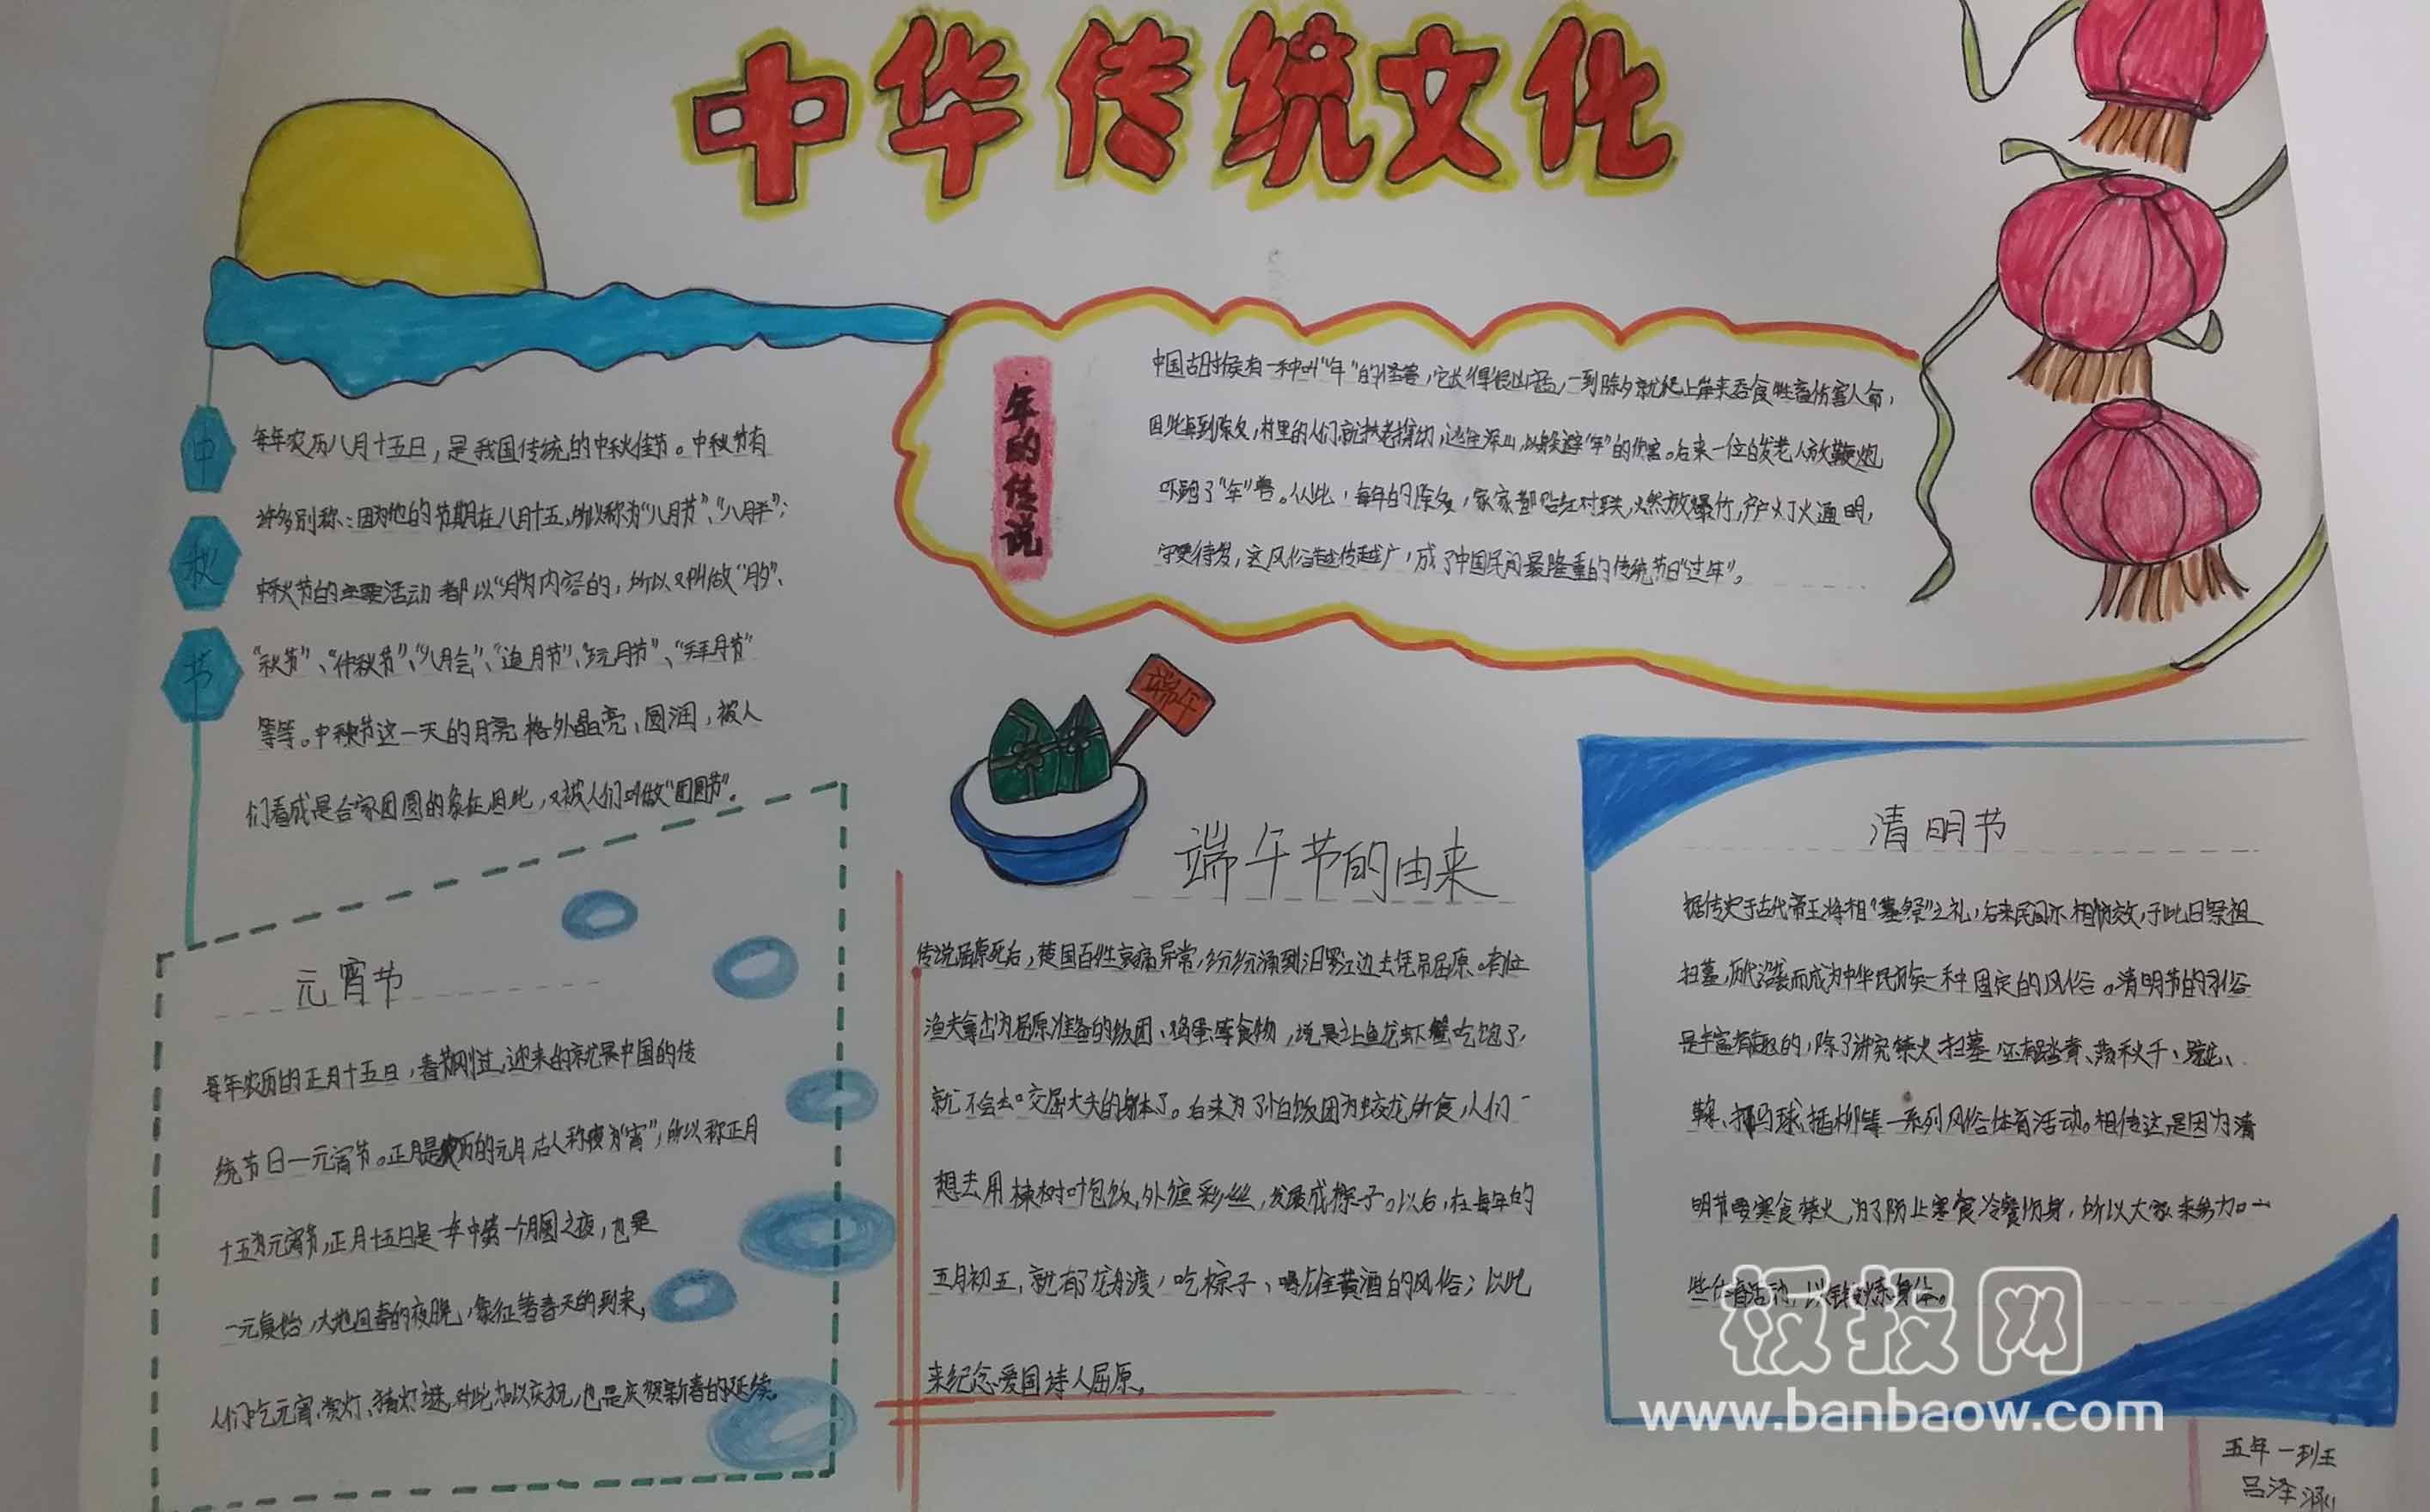 中华传统文化
年的传说
中国古时候有一种叫“年”的怪兽，它长得很凶恶，一到除夕就爬上岸来吞食牲畜伤害人命，
因此每到除夕，村里的人们就扶老携幼，逃往深山，以躲避“年”的伤害。后来一位白发老人放鞭炮
吓跑了“年”兽。从此，每年的除夕，家家都贴红对联，燃放爆竹，户户灯火通明，
守更待岁，这风俗越传越广，成了中国民间最隆重的传统节日“过年”。
中秋节
每年农历八月十五日，是我国传统的中秋佳节。中秋节有
许多别称：因为他的节期在八月十五，所以称为“八月节”、“八月半”；
中秋节的主要活动都以“月”为内容的，所以又叫做“月夕”、
“秋节”、“仲秋节”、“八月会”、“追月节”、“玩月节”、“拜月节”
等等。中秋节这一天的月亮格外晶亮、圆润，被人
们看成是合家团圆的象征因此，又被人们叫做“团圆节”。
端午
端午节的由来
传说屈原死后，楚国百姓哀痛异常，纷纷涌到汨罗江边去凭吊屈原。有位
渔夫拿出为屈原准备的饭团、鸡蛋等食物，说是让鱼龙虾蟹吃饱了，
就不会去咬屈大夫的身体了。后来为了怕饭团为蛟龙所食，人们
想去用楝树叶包饭，外缠彩丝，发展成棕子。以后，在每年的
五月初五，就有了龙舟渡，吃粽子、喝雄黄酒的风俗；以此
来纪念爱国诗人屈原。
清明节
据传史于古代帝王将相“墓祭”之礼，后来民间亦相仿效，于此日祭祖
扫墓，历代沿袭而成为中华民族一种固定的风俗。清明节的习俗
是丰富有趣的，除了讲究禁火扫墓还有踏青、荡秋千、蹴
鞠、打马球、插柳等一系列风俗体育活动。相传这是因为清
明节要寒食禁火，为了防止寒食冷餐伤身，所以大家来参加一
些体育活动，以锻炼身体。
元宵节
每年农历的正月十五日，春节刚过，迎来的就是中国的传
统节日一元宵节。正月是农历的元月古人称夜为“宵”，所以称正月
十五为元宵节，正月十五日是一年中第一个月圆之夜，也是
一元复始，大地回春的夜晚，象征着春天的到来，
人们吃元宵、赏灯、猜灯谜，对此加以庆祝，也是庆贺新春的延续。
板报网
www.banbaow.com
五年一班
吕泽